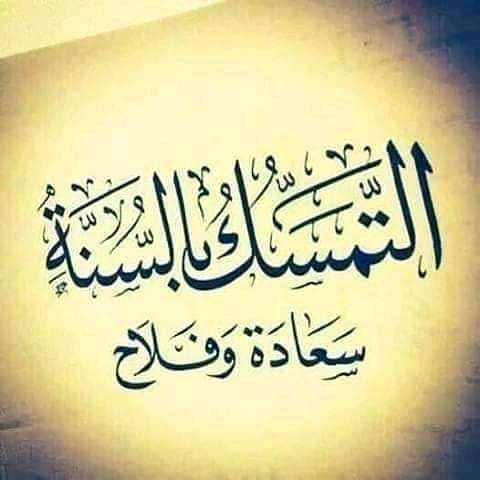 التَّمَسُّكُ بِالسُّنَّةِ
سَعَادَة وَفَلَاح